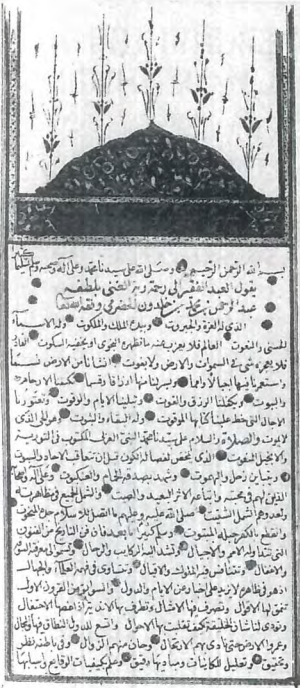 بسم الله الرحمن الرحيم وصلى الله على سيدنا محمد وعلى آله وصحبه وسلم
يقول العبد الفقير الى رحمة ربه الغنى بلطفه
عبد الرحمن بن محمد بن خلدون الحضرمى وفقه الله
الذى له العزة والجبروت وبيده الملك والملكوت وله الاسماء
الحسنى والنعوت العالم فلا يعزب عنه ما تظهره النجوى او يخفيه السكوت القادر
فلا يعجزه شى فى السموات والارض ولا يفوت انشانا من الارض نسما
واستعمرنا فيها اجيالا وامما ويسر لنا منها ارزاقا وقسما تكنفنا الارحام
والبيوت ويكفلنا الرزق والقوت وتبلينا الايام والوقوت وتعتورنا
الاجال التى خط علينا كتابها الموقوت وله البقاء والثبوت وهو الحى الذى
لا يموت والصلاة والسلام على سيدنا محمد النبى العربى المكتوب فى التورية
والانجيل المنعوت الذى تمخض لفصاله الكون قبل ان تتعاقب الآحاد والسبوت
ويتباين زحل واليهموت وشهد بصدقه الحمام والعنكبوت وعلى آله واصحابه
الذين لهم فى صحبته واتباعه الاثر البعيد والصيت والشمل الجميع فى مظاهرته
ولعدوهم الشمل الشتيت صلى الله عليه وعليهم ما اتصل بالاسلام جده المبخوت
وانقطع بالكفر حبله المبتوت وسلم كثيرا اما بعد فان فن التاريخ من الفنون
التى تتداوله الامم والاجيال وتشد اليه الركائب والرحال وتسمو الى معرفته السوقة
والاغفال وتتنافس فيه الملوك والاقيال ويتساوى فى فهمه العلماء والجهال
اذ هو فى ظاهره لا يزيد على اخبار عن الايام والدول والسوابق من القرون الاول
تنمق لها الاقوال وتصرف فيها الامثال وتطرف بها الاندية اذا غصها الاحتفال
وتودى لنا شان الخليقة كيف تقلبت بها الاحوال واتسع للدول النطاق فيها والمجال
وعمروا الارض حتى نادى بهم الارتحال وحان منهم الزوال وفى باطنه نظر
وتحقيق وتعليل للكاينات ومباديها دقيق وعلم بكيفيات الوقايع واسبابها